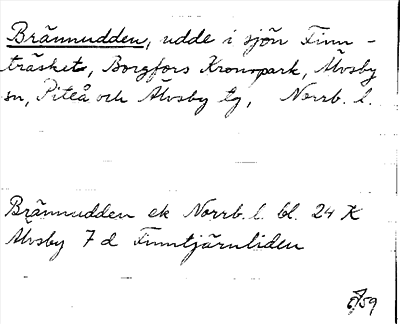 Brännudden, udde i sjön Finn-
träsket, Borgfors Kronopark, Älvsby
sn, Piteå och Älvsby tg, Norrb. l.
Brännudden ek Norrb. l. bl. 24 K
Älvsby 7 d Finntjärnliden